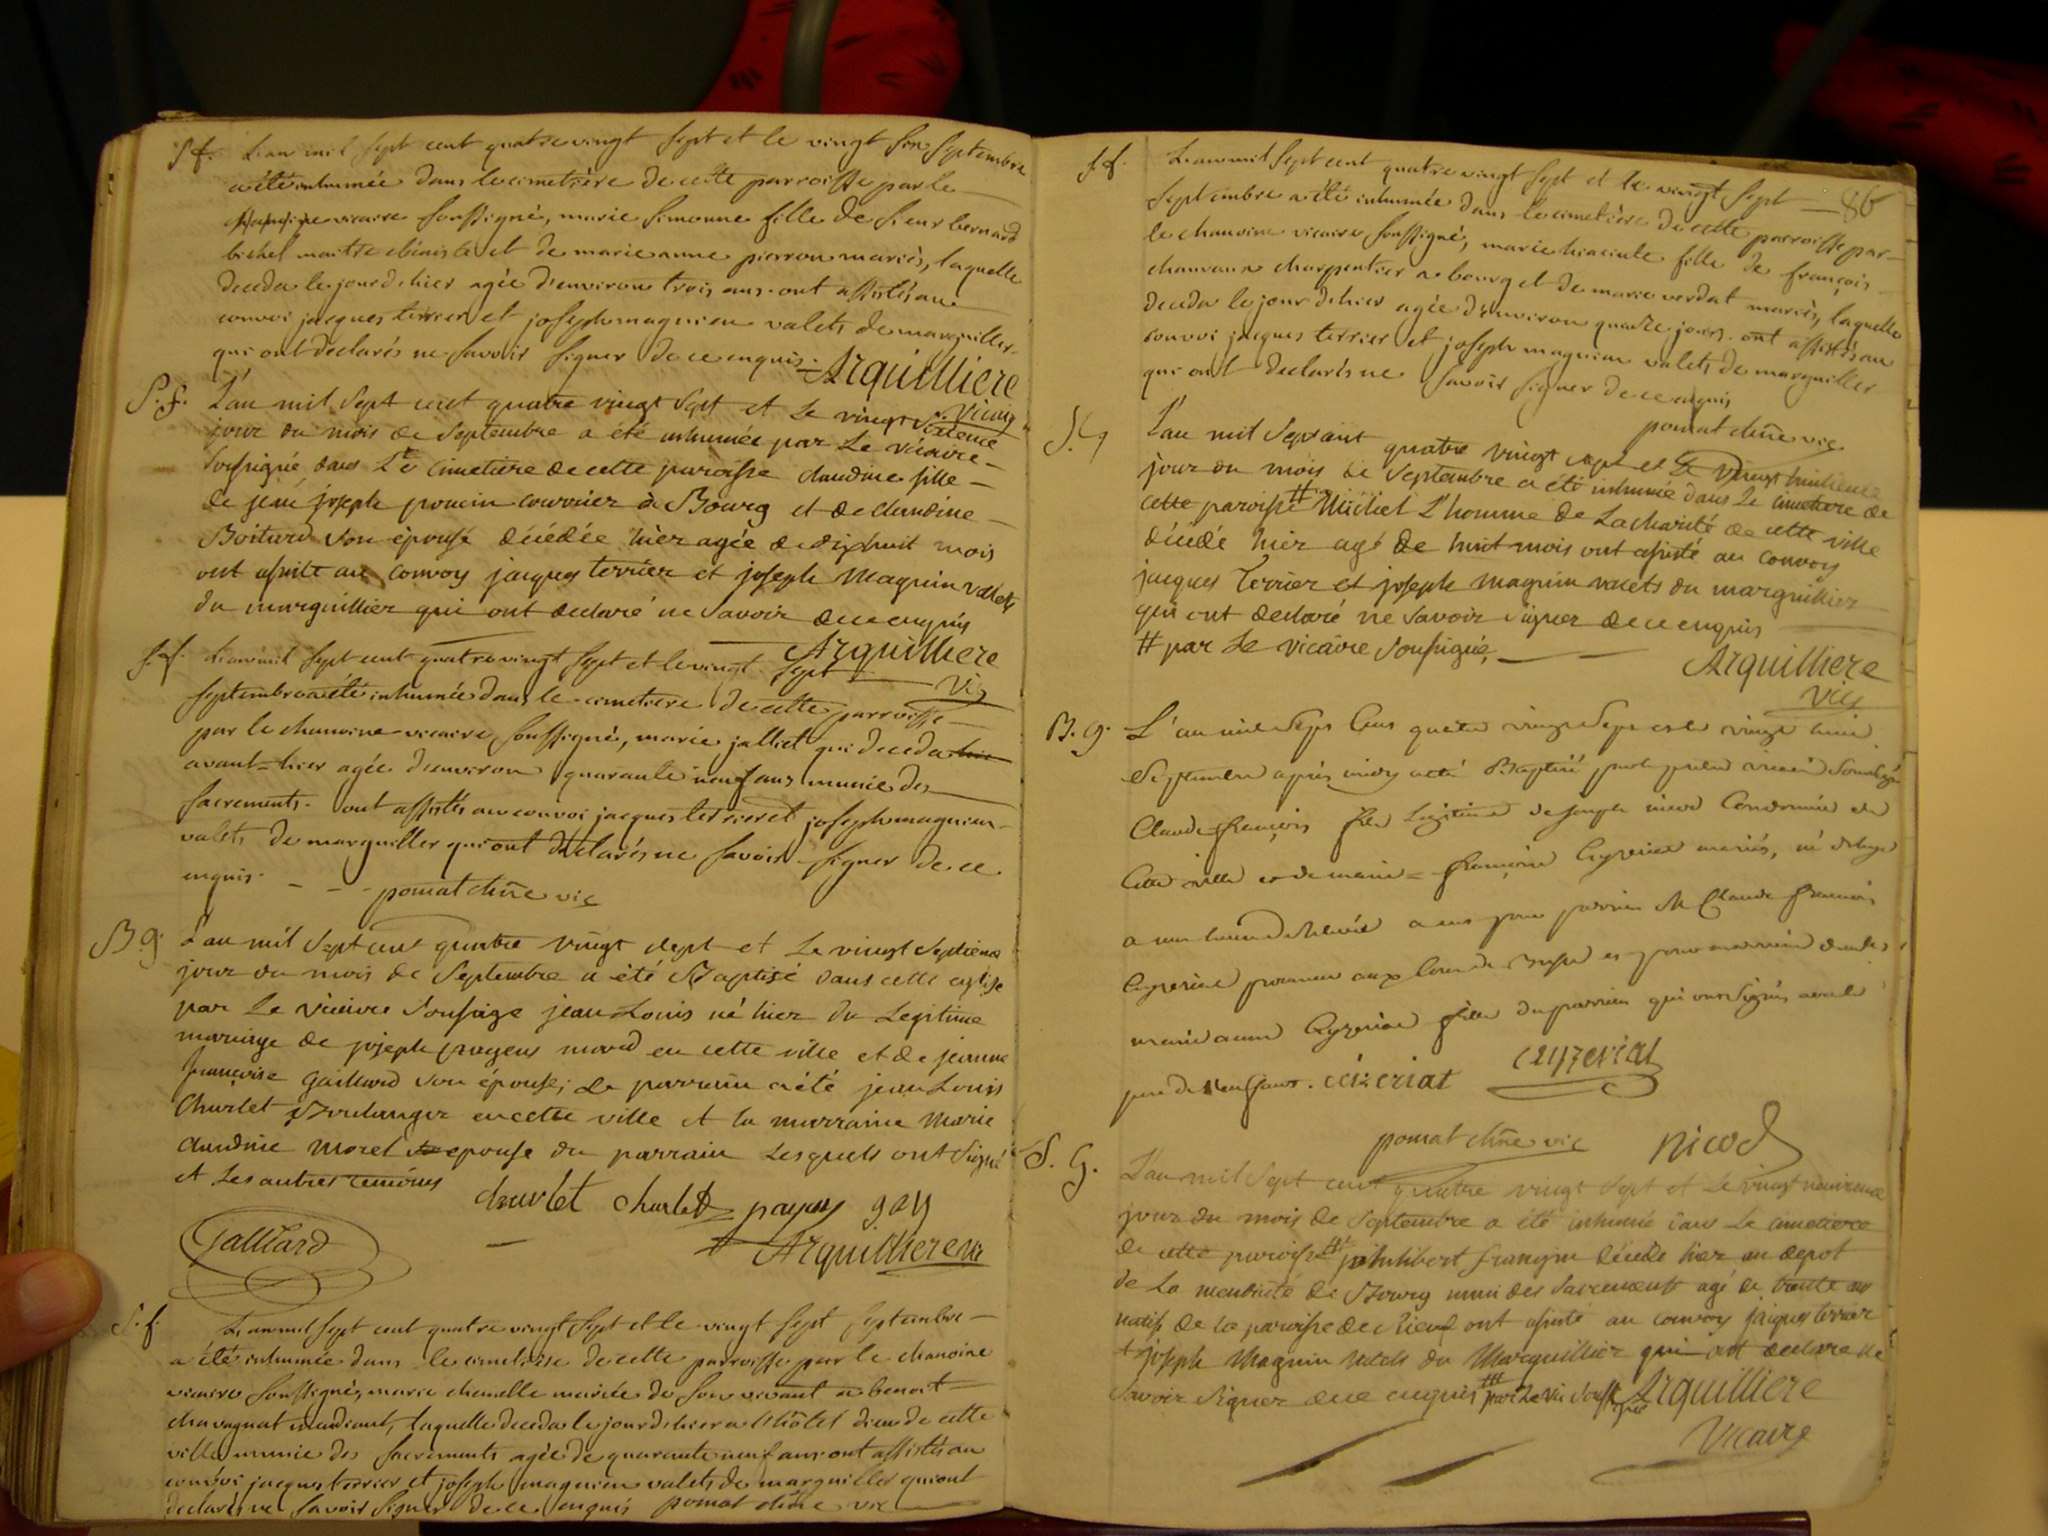 S f. L'an mil sept cent quatre vingt sept et le vingt six septembre
a été inhumée dans le cimetière de cette parroisse par le
vicaire soussigné, marie simonne fille de sieur bernard
bichel maitre ébéniste et de marie anne pierron mariés, laquelle
deceda le jour d'hier agée d'environ trois ans. ont assistés au
convoi jacques terrier et joseph magnien valets de marguiller
qui ont declarés ne savoir signer de ce enquis. Arquilliere
vicaire
S. f. L'an mil sept cent quatre vingt sept et le vingt sixieme
jour du mois de septembre a été inhumée par le vicaire
soussigné dans le cimetiere de cette paroisse claudine fille
de jean joseph poncin courrier à Bourg et de claudine
Boitard son épouse décédée hièr agée de dix huit mois
ont assisté au convoy jacques terrièr et joseph Magnin valets
du marguillier qui ont declaré ne savoir de ce enquis
Arquilliere
vic
S. f. L'an mil sept cent quatre vingt sept et le vingt sept
septembre a été inhumée dans le cimetiere de cette parroisse
par le chanoine vicaire soussigné, marie jalliet qui deceda hier
avant-hier agée d'environ quarante neuf ans munie des
sacrements. ont assistés au convoi jacques terrier et joseph magnien
valets de marguiller qui ont declarés ne savoir signer de ce
enquis. pomat chne vic
B g. L'an mil sept cent quatre vingt sept et le vingt septieme
jour du mois de septembre a été Baptisé dans cette eglise
par le vicaire soussigé jean Louis né hier du Legitime
mariage de joseph payeus en cette ville et de jeanne
françoise Gaillard son épouse; le parrain a été jean Louis
Churlet Boulanger en cette ville et la marraine Marie
claudine Morel epouse du parrain Lesquels ont signé
et Les autres temoins
churlet churlet payeus gay
Galliard Arquilliere vic
S. f. L'an mil sept cent quatre vingt sept et le vingt sept septembre
a été inhumée dans le cimetiere de cette parroisse par le chanoine
vicaire soussigné, marie chanelle mariée de son vivant a benoit
chavagnat mendiant, laquelle deceda le jour d'hier a l'hôtel dieu de cette
ville munie des sacrements agée de quarante neuf ans. ont assistés au
convoi jacques terrier et joseph magnien valets de marguiller qui ont
declarés ne savoir signer de ce enquis pomat chne vic
86
S. f. L'an mil sept cent quatre vingt sept et le vingt sept
septembre a été inhumée dans le cimetière de cette parroisse par
le chanoine vicaire soussigné, marie hiacinte fille de françois
chanvanx charpentier a bourg et de marie verdat mariés, laquelle
deceda le jour d'hier agée d'environ quatre jours. ont assistés au
convoi jacques terrier et joseph magnien valets de marguiller
qui ont declarés ne savoir signer de ce enquis
pomat chne vic
S. g. L'an mil sept cent quatre vingt sept et le vingt huitieme
jour du mois de septembre a été inhumée dans le cimetiere de
cette paroisse # Michel L'homme de La charité de cette ville
décédé hièr agé de huit mois ont assisté au convoy
jacques Terrier et joseph magnin valets du marguillier
qui ont declaré ne savoir signer de ce enquis
# par Le vicaire soussigné,
Arquilliere
vic
B. g. L'an mil sept Cens quatre vingt sept et le vingt huit
septembre après midy a été Baptisé par le vicaire soussigné
Claude françois fils legitime de joseph nicod Cordonnier en
Cette ville et de marie françoise Ceyzeriat mariés, né d'hier
a eu pour parrain M Claude françois
Ceyzeriat et pour marraine
marie anne Ceyzeriat fille du parrain qui ont signés avec le
pere de l'enfant. céizeriat ceyzeriat
pomat chne vic nicod
S. G. L'an mil sept cent quatre vingt sept et Le vingt neuvieme
jour du mois de septembre a été inhumée dans Le cimetiere
de cette paroisse # philibert françon décédé hier au depot
de La mendicité de Bourg muni des sacrements agé de trente ans
natif de la paroisse de ont assisté au convoy jacques terrier
et joseph Magnin valets du Marguillier qui ont declaré ne
savoir signer de ce enquis # par Le vic soussigné Arquilliere
Vicaire